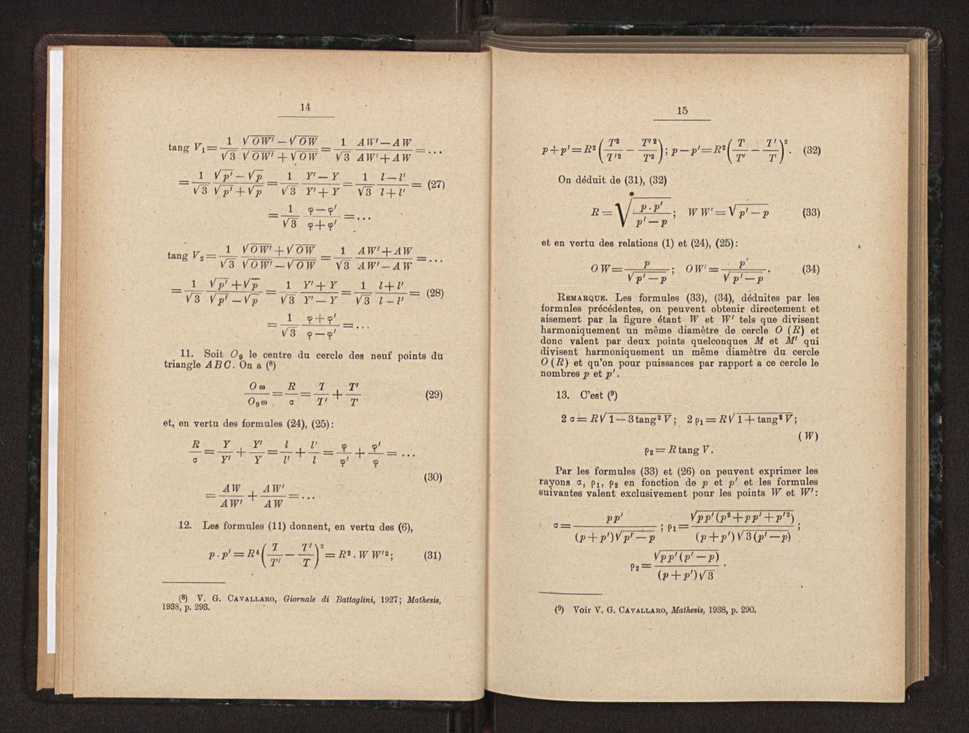 14
tang V₁ = 1/√3 (√OW' − √OW)/(√OW' + √OW) = 1/√3 (AW' − AW)/(AW' + AW) = ...
= 1/√3 (√p' − √p)/(√p' + √p) = 1/√3 (Y' − Y)/(Y' + Y) = 1/√3 (l − l')/(l + l') = (27)
= 1/√3 (φ − φ')/(φ + φ') = ...
tang V₂ = 1/√3 (√OW' + √OW)/(√OW' − √OW) = 1/√3 (AW' + AW)/(AW' − AW) = ...
= 1/√3 (√p' + √p)/(√p' − √p) = 1/√3 (Y' + Y)/(Y' − Y) = 1/√3 (l + l')/(l − l') = (28)
= 1/√3 (φ + φ')/(φ − φ') = ...
11. Soit O₉ le centre du cercle des neuf points du
triangle ABC. On a (⁸)
Oω/O₉ω = R/σ = T/T' + T'/T (29)
et, en vertu des formules (24), (25):
R/σ = Y/Y' + Y'/Y = l/l' + l'/l = φ/φ' + φ'/φ = ...
(30)
= AW/AW' + AW'/AW = ...
12. Les formules (11) donnent, en vertu des (6),
p . p' = R⁴ (T/T' − T'/T)² = R² . W W'²; (31)
(⁸) V. G. Cavallaro, Giornale di Battaglini, 1927; Mathesis,
1938, p. 293.
15
p + p' = R² (T²/T'² − T'²/T²); p − p' = R² (T/T' − T'/T)². (32)
On déduit de (31), (32)
R = √(p . p'/(p' − p)); W W' = √(p' − p) (33)
et en vertu des relations (1) et (24), (25):
OW = p/√(p' − p); OW' = p'/√(p' − p). (34)
Remarque. Les formules (33), (34), déduites par les
formules précédentes, on peuvent obtenir directement et
aisement par la figure étant W et W' tels que divisent
harmoniquement un même diamètre de cercle O (R) et
donc valent par deux points quelconques M et M' qui
divisent harmoniquement un même diamètre du cercle
O (R) et qu'on pour puissances par rapport a ce cercle le
nombres p et p'.
13. C'est (⁹)
2 σ = R √(1 − 3 tang² V); 2 ρ₁ = R √(1 + tang² V);
(W)
ρ₂ = R tang V.
Par les formules (33) et (26) on peuvent exprimer les
rayons σ, ρ₁, ρ₂ en fonction de p et p' et les formules
suivantes valent exclusivement pour les points W et W':
σ = pp'/((p + p')√(p' − p)); ρ₁ = √(pp' (p² + pp' + p'²))/((p + p')√3(p' − p));
ρ₂ = √(pp' (p' − p))/((p + p')√3).
(⁹) Voir V. G. Cavallaro, Mathesis, 1938, p. 290.